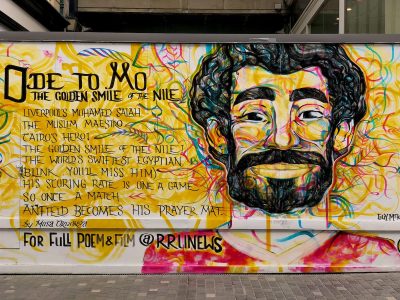 ODE TO MO
THE GOLDEN SMILE OF THE NILE
LIVERPOOL'S MOHAMED SALAH
THE MUSLIM MAESTRO
CAIRO'S HERO!
THE GOLDEN SMILE OF THE NILE!
THE WORLD'S SWIFTEST EGYPTIAN
(BLINK YOU'LL MISS HIM)
HIS SCORING RATE IS ONE A GAME
SO ONCE A MATCH
ANFIELD BECOMES HIS PRAYER MAT.
by Musa
FOR FULL POEM & FILM @RRUNEWS